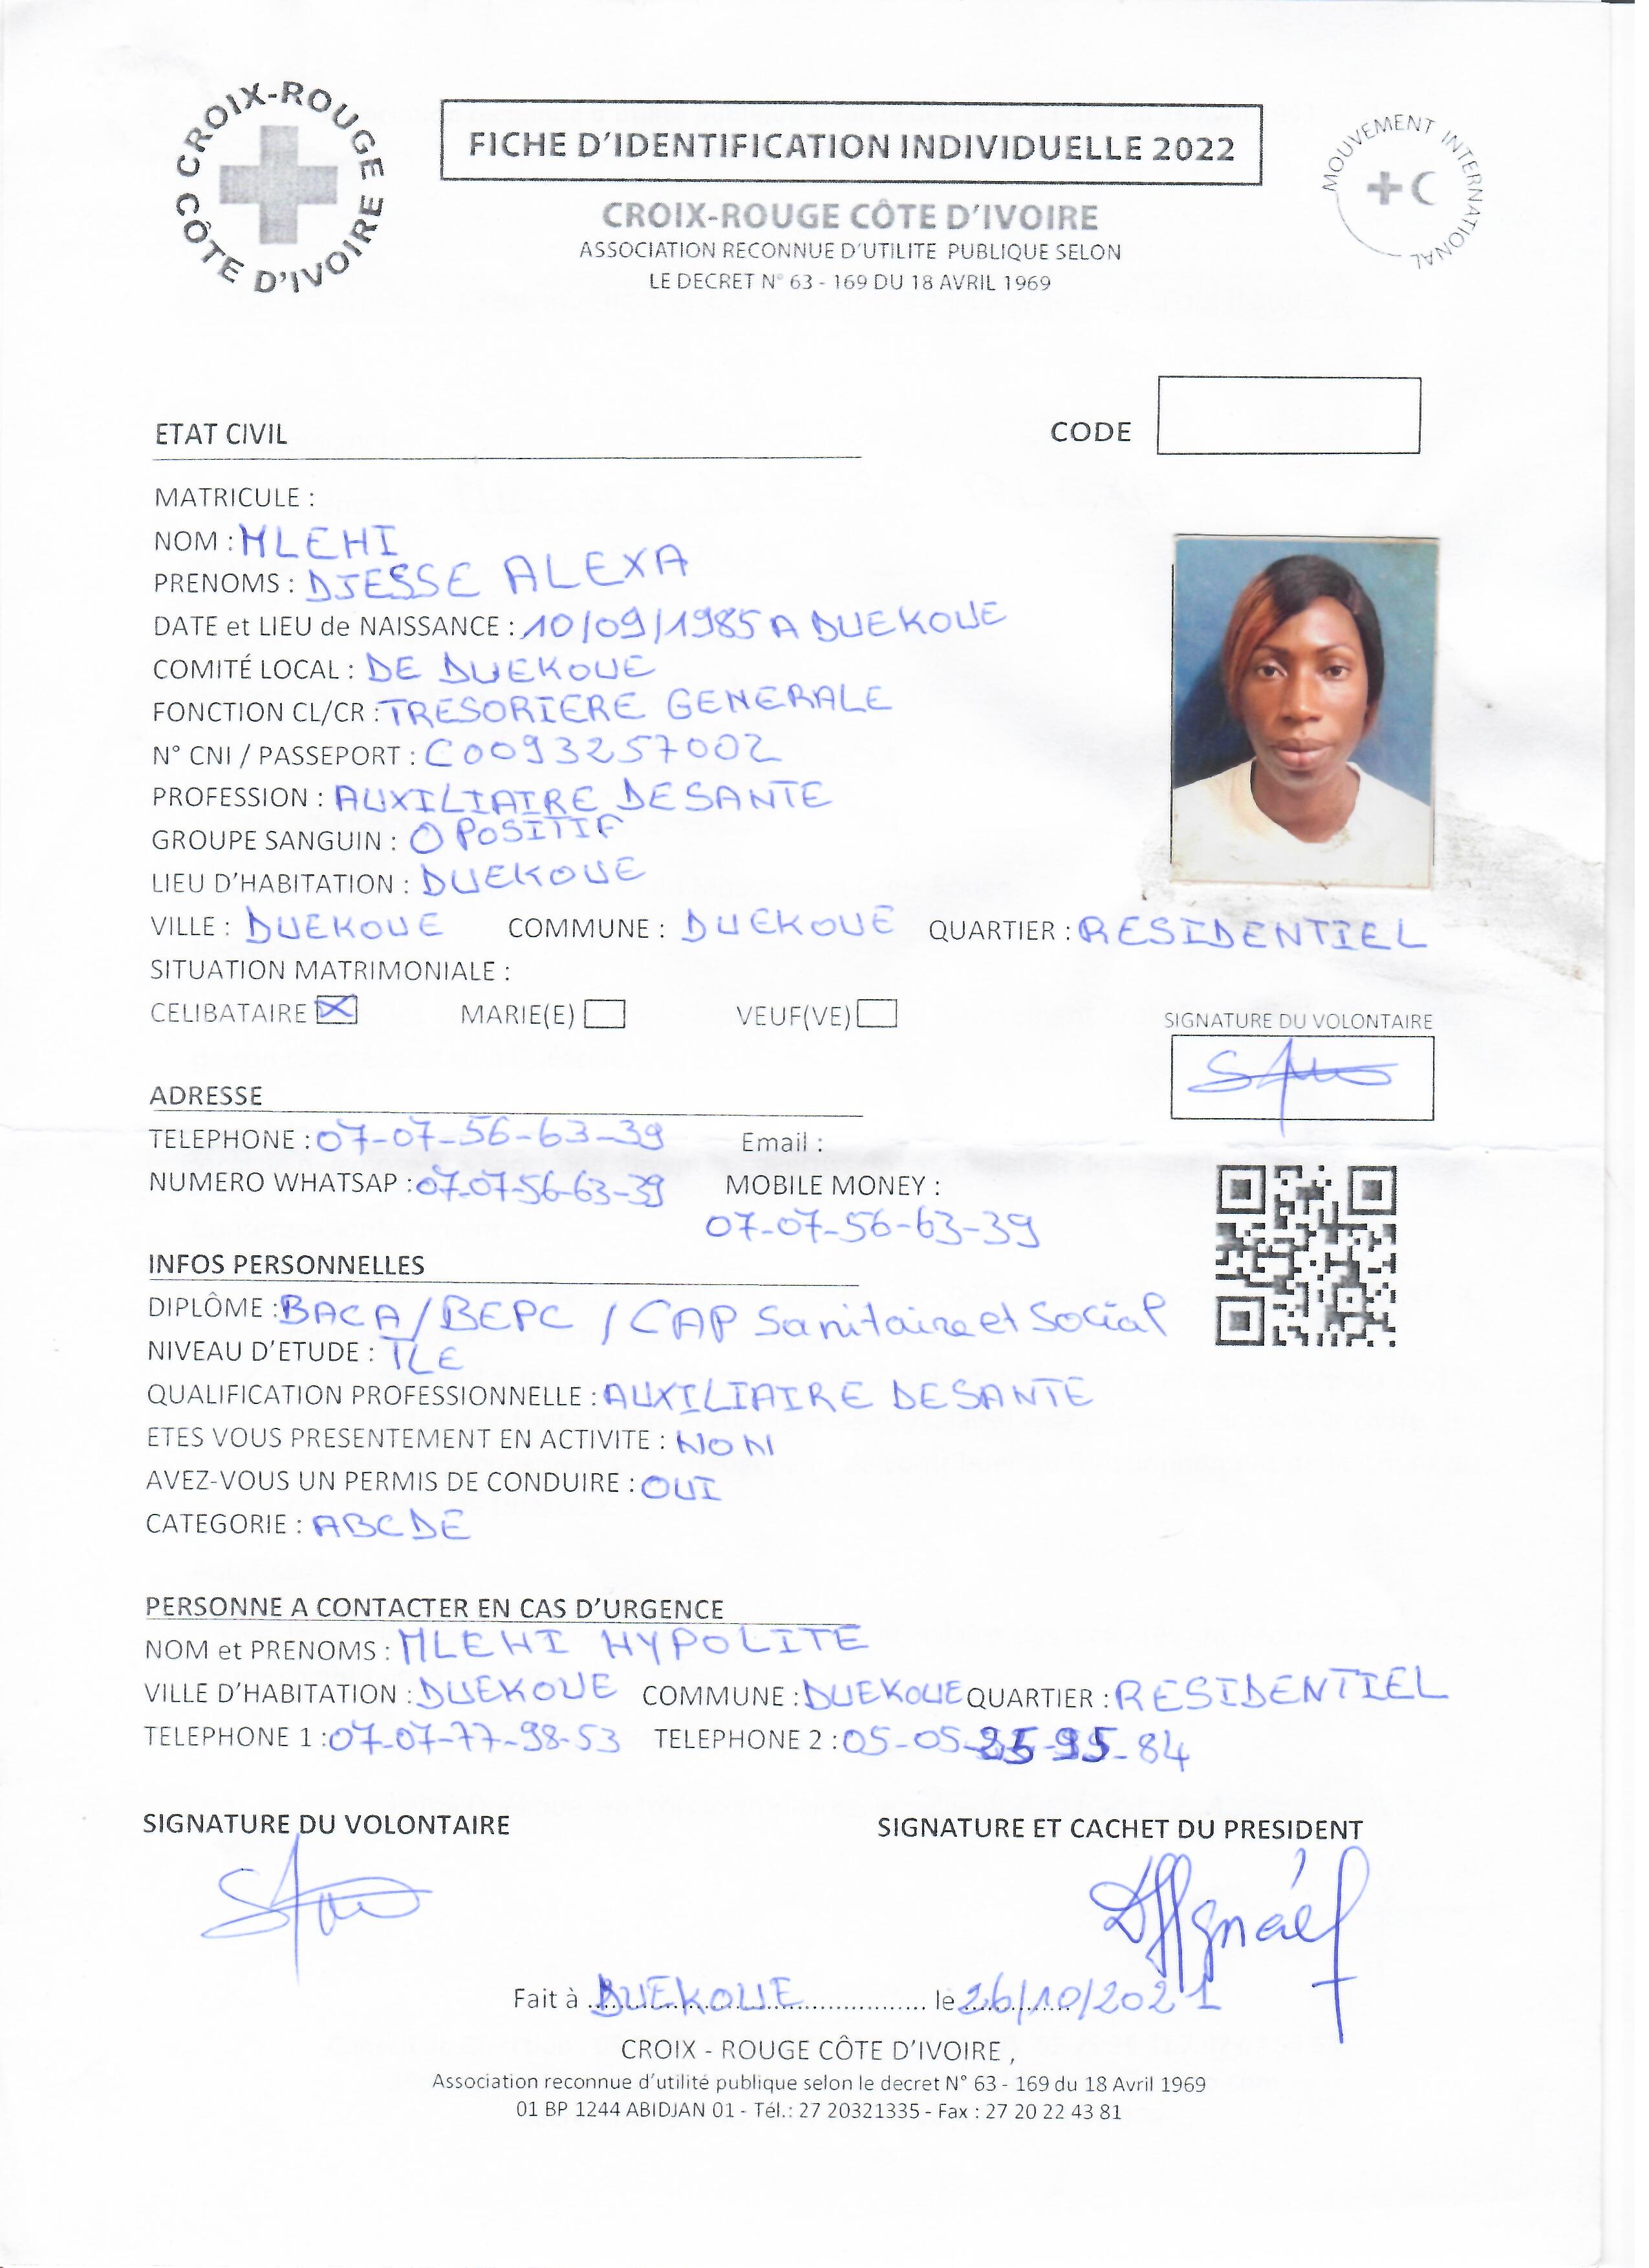 CROIX-ROUGE CÔTE D'IVOIRE
FICHE D'IDENTIFICATION INDIVIDUELLE 2022
MOUVEMENT INTERNATIONAL
CROIX-ROUGE CÔTE D'IVOIRE
ASSOCIATION RECONNUE D'UTILITE PUBLIQUE SELON
LE DECRET N° 63 - 169 DU 18 AVRIL 1969
ETAT CIVIL
CODE
MATRICULE :
NOM : MLEHI
PRENOMS : DJESSE ALEXA
DATE et LIEU de NAISSANCE : 10/09/1985 A DUEKOUE
COMITÉ LOCAL : DE DUEKOUE
FONCTION CL/CR : TRESORIERE GENERALE
N° CNI / PASSEPORT : C0093257002
PROFESSION : AUXILIAIRE DE SANTE
GROUPE SANGUIN : O POSITIF
LIEU D'HABITATION : DUEKOUE
VILLE : DUEKOUE COMMUNE : DUEKOUE QUARTIER : RESIDENTIEL
SITUATION MATRIMONIALE :
CELIBATAIRE X MARIE(E) VEUF(VE)
SIGNATURE DU VOLONTAIRE
ADRESSE
TELEPHONE : 07-07-56-63-39 Email :
NUMERO WHATSAP : 07-07-56-63-39 MOBILE MONEY :
07-07-56-63-39
INFOS PERSONNELLES
DIPLÔME : BAC A/BEPC / CAP Sanitaire et Social
NIVEAU D'ETUDE : TLE
QUALIFICATION PROFESSIONNELLE : AUXILIAIRE DE SANTE
ETES VOUS PRESENTEMENT EN ACTIVITE : NON
AVEZ-VOUS UN PERMIS DE CONDUIRE : OUI
CATEGORIE : ABCDE
PERSONNE A CONTACTER EN CAS D'URGENCE
NOM et PRENOMS : MLEHI HYPOLITE
VILLE D'HABITATION : DUEKOUE COMMUNE : DUEKOUE QUARTIER : RESIDENTIEL
TELEPHONE 1 : 07-07-77-98-53 TELEPHONE 2 : 05-05-25-95-84
SIGNATURE DU VOLONTAIRE
SIGNATURE ET CACHET DU PRESIDENT
Fait à DUEKOUE le 26/10/2021
CROIX - ROUGE CÔTE D'IVOIRE ,
Association reconnue d'utilité publique selon le decret N° 63 - 169 du 18 Avril 1969
01 BP 1244 ABIDJAN 01 - Tél.: 27 20321335 - Fax : 27 20 22 43 81